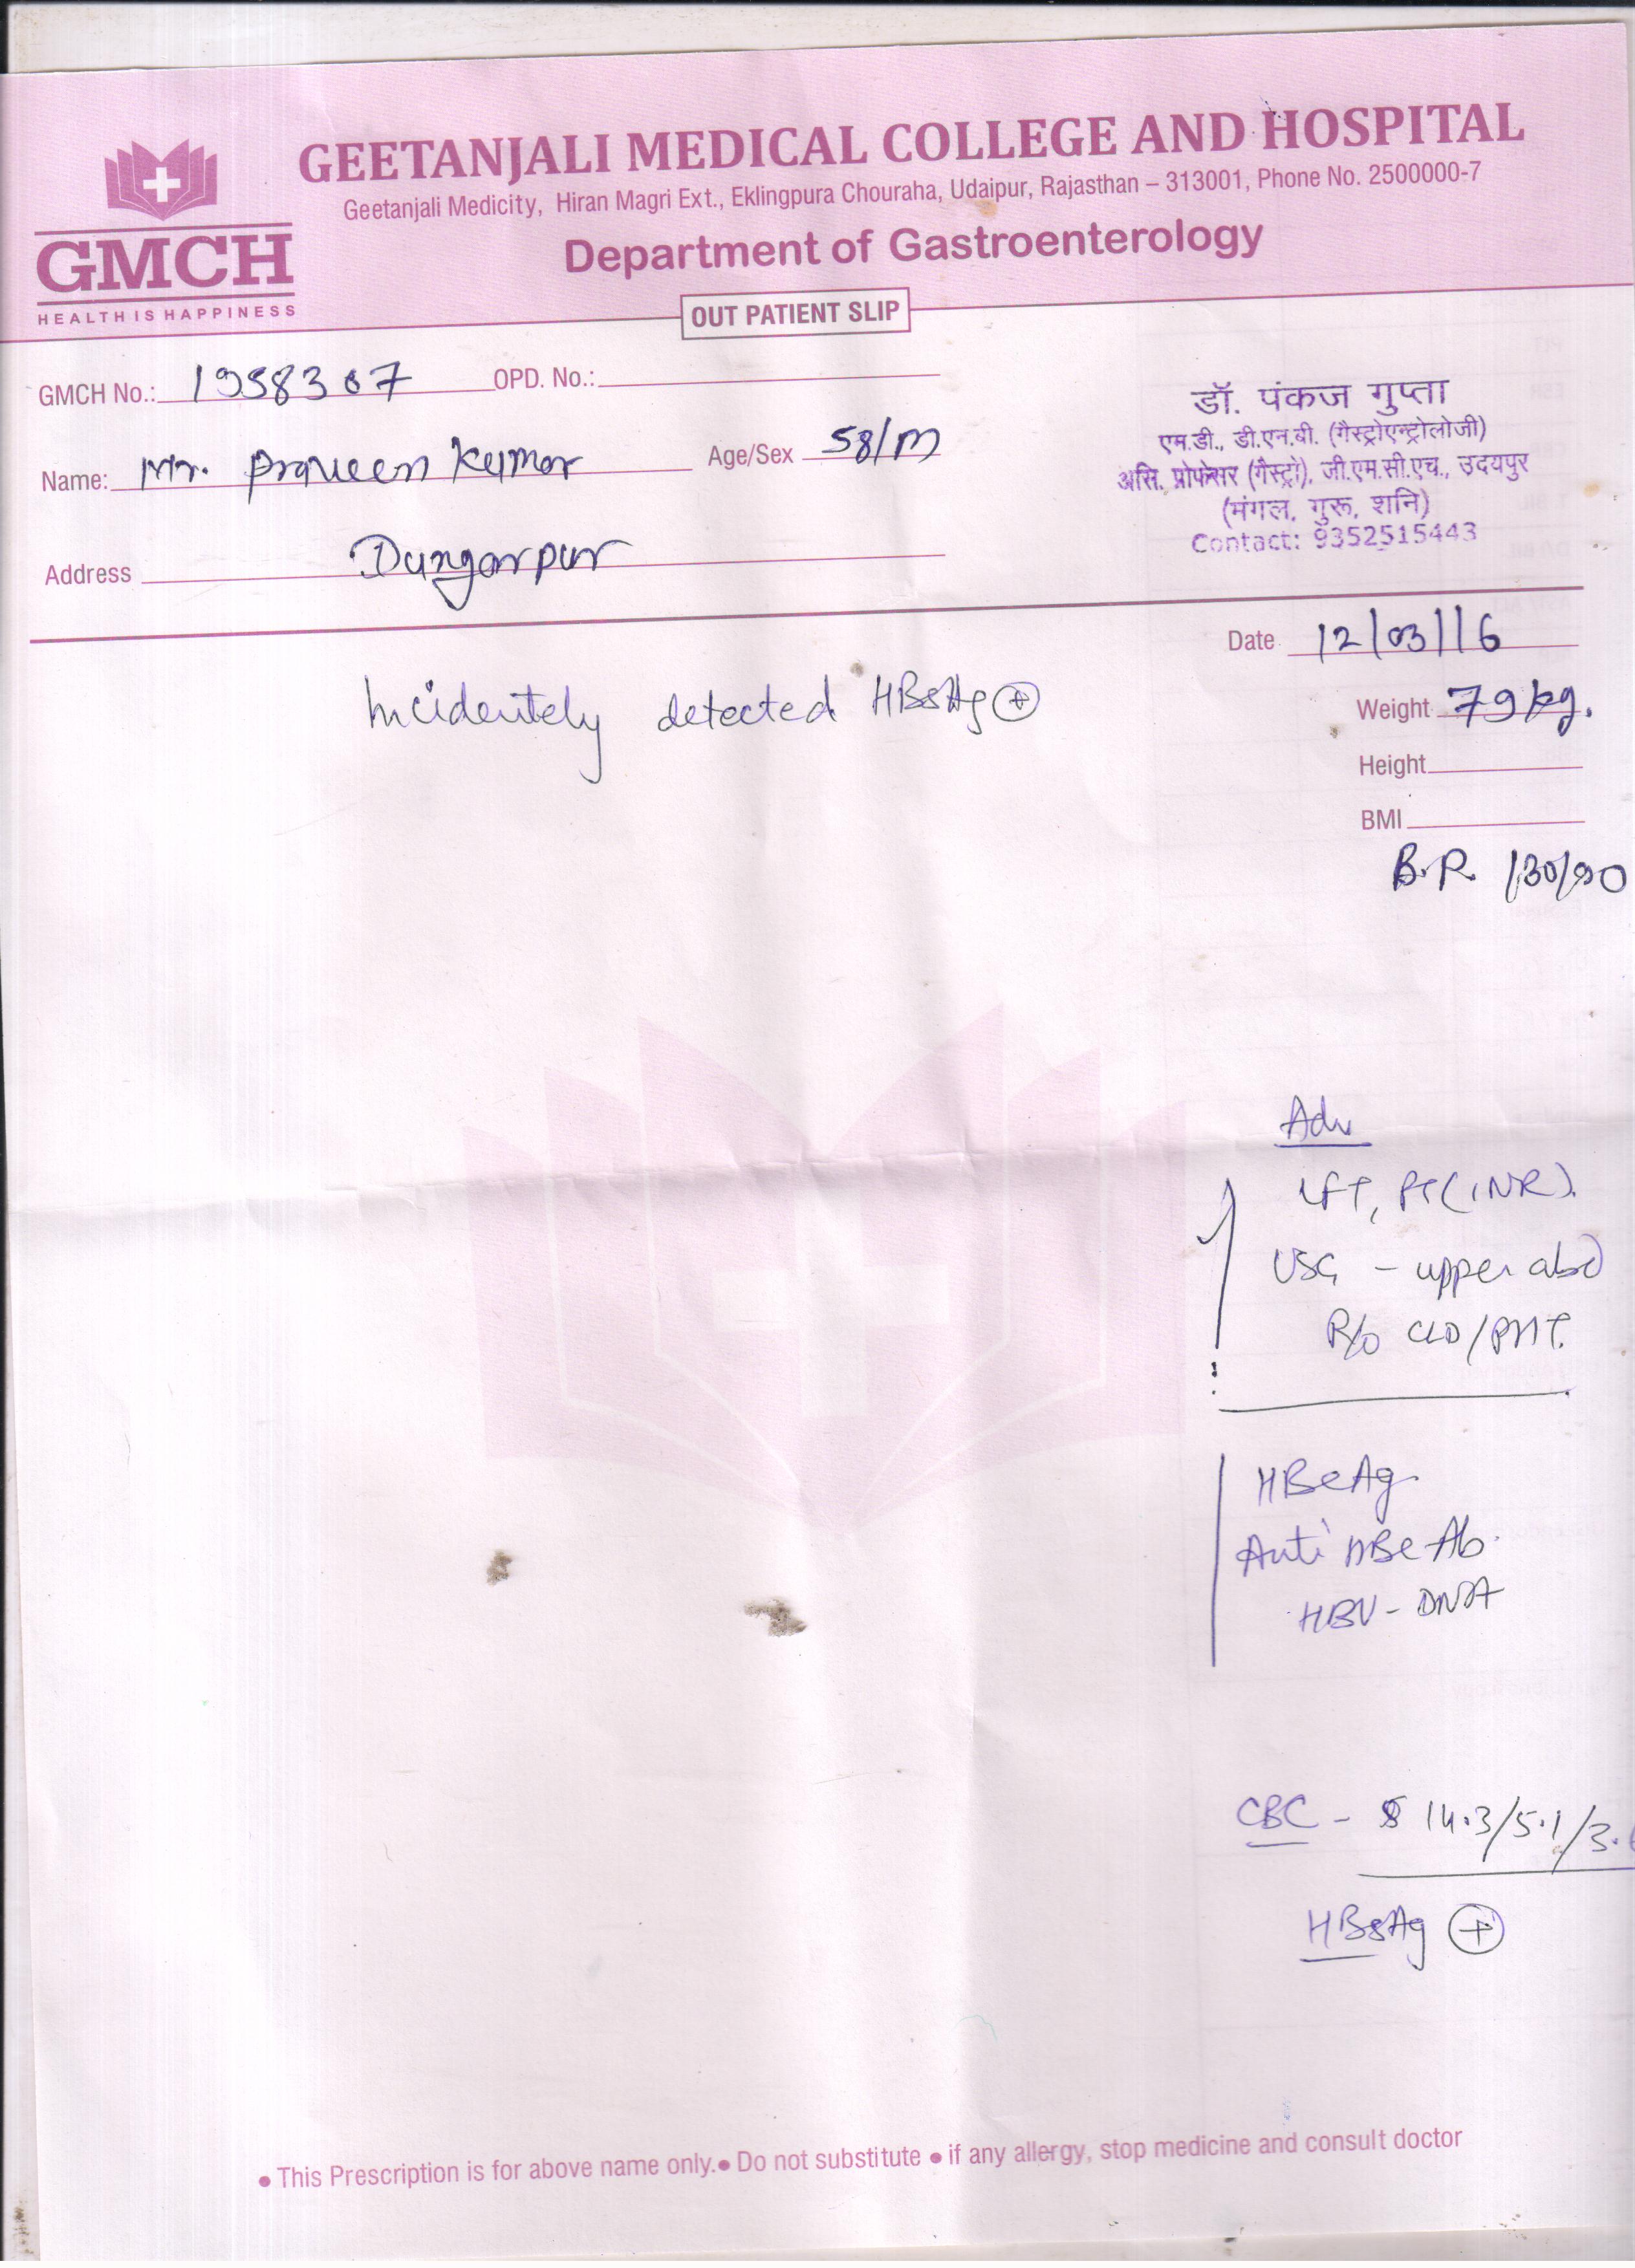 GEETANJALI MEDICAL COLLEGE AND HOSPITAL
Geetanjali Medicity, Hiran Magri Ext., Eklingpura Chouraha, Udaipur, Rajasthan – 313001, Phone No. 2500000-7
Department of Gastroenterology
GMCH
HEALTH IS HAPPINESS
OUT PATIENT SLIP
GMCH No.: 1958307 OPD. No.:
Name: Mr. Praveen Kumar Age/Sex 58/M
Address Dungarpur
डॉ. पंकज गुप्ता
एम.डी., डी.एन.बी. (गैस्ट्रोएन्ट्रोलोजी)
असि. प्रोफेसर (गैस्ट्रो), जी.एम.सी.एच., उदयपुर
(मंगल, गुरू, शनि)
Contact: 9352515443
Date 12/03/16
Incidentely detected HBsAg (+)
Weight 79 kg.
Height
BMI
B.P. 130/90
Adv
LFT, PT (INR).
USG - upper abd
R/o CLD/PHT.
HBeAg
Anti HBe Ab.
HBV - DNA
CBC - 14.3/5.1/3.
HBsAg (+)
• This Prescription is for above name only. • Do not substitute • if any allergy, stop medicine and consult doctor